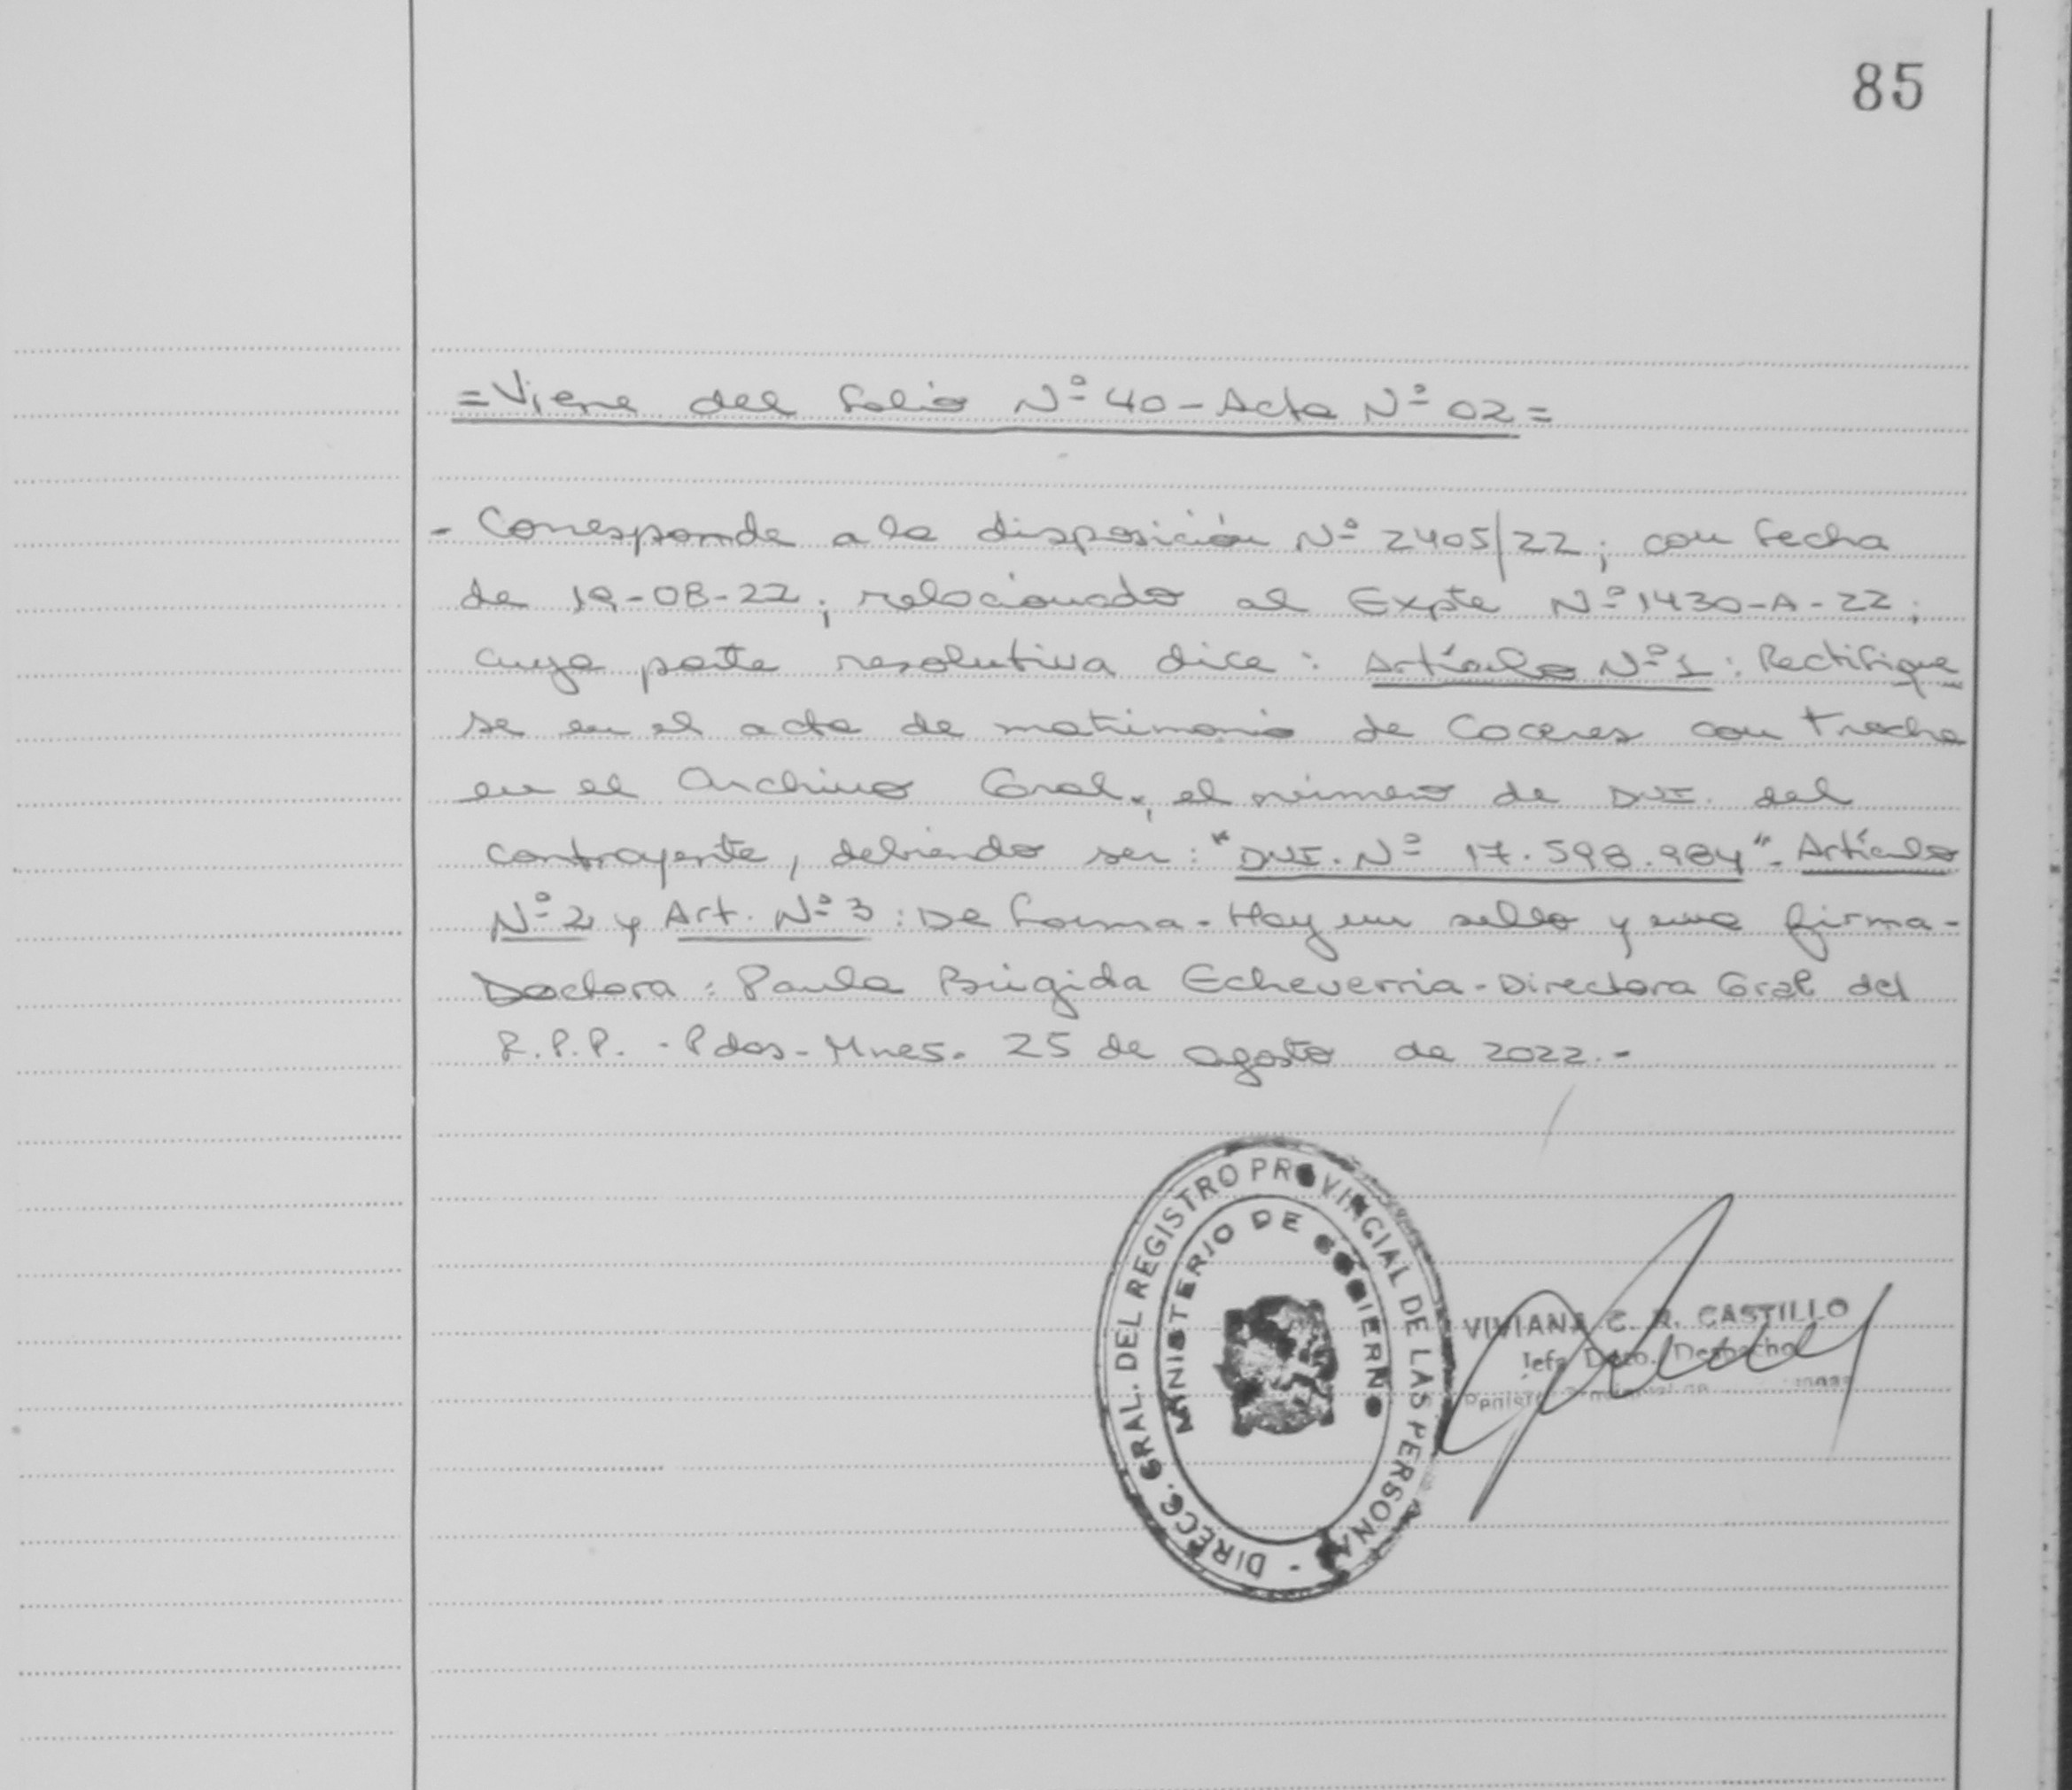 85
=Viene del folio Nº 40-Acta Nº 02=
- Corresponde a la disposición Nº 2405/22; con fecha
de 19-08-22; relacionado al Expte Nº 1430-A-22;
cuya parte resolutiva dice: Artículo Nº 1: Rectifíque
se en el acta de matrimonio de Caceres con Trache
en el Archivo Gral., el número de DNI. del
contrayente, debiendo ser: "DNI. Nº 17.598.984". Artículo
Nº 2 y Art. Nº 3: De forma-Hay un sello y una firma-
Doctora: Paula Brígida Echeverria-Directora Gral del
R.P.P. -Pdas-Mnes. 25 de agosto de 2022.-
DIRECC. GRAL. DEL REGISTRO PROVINCIAL DE LAS PERSONAS -
MINISTERIO DE GOBIERNO
VIVIANA C. R. CASTILLO
Jefa Dpto. Despacho